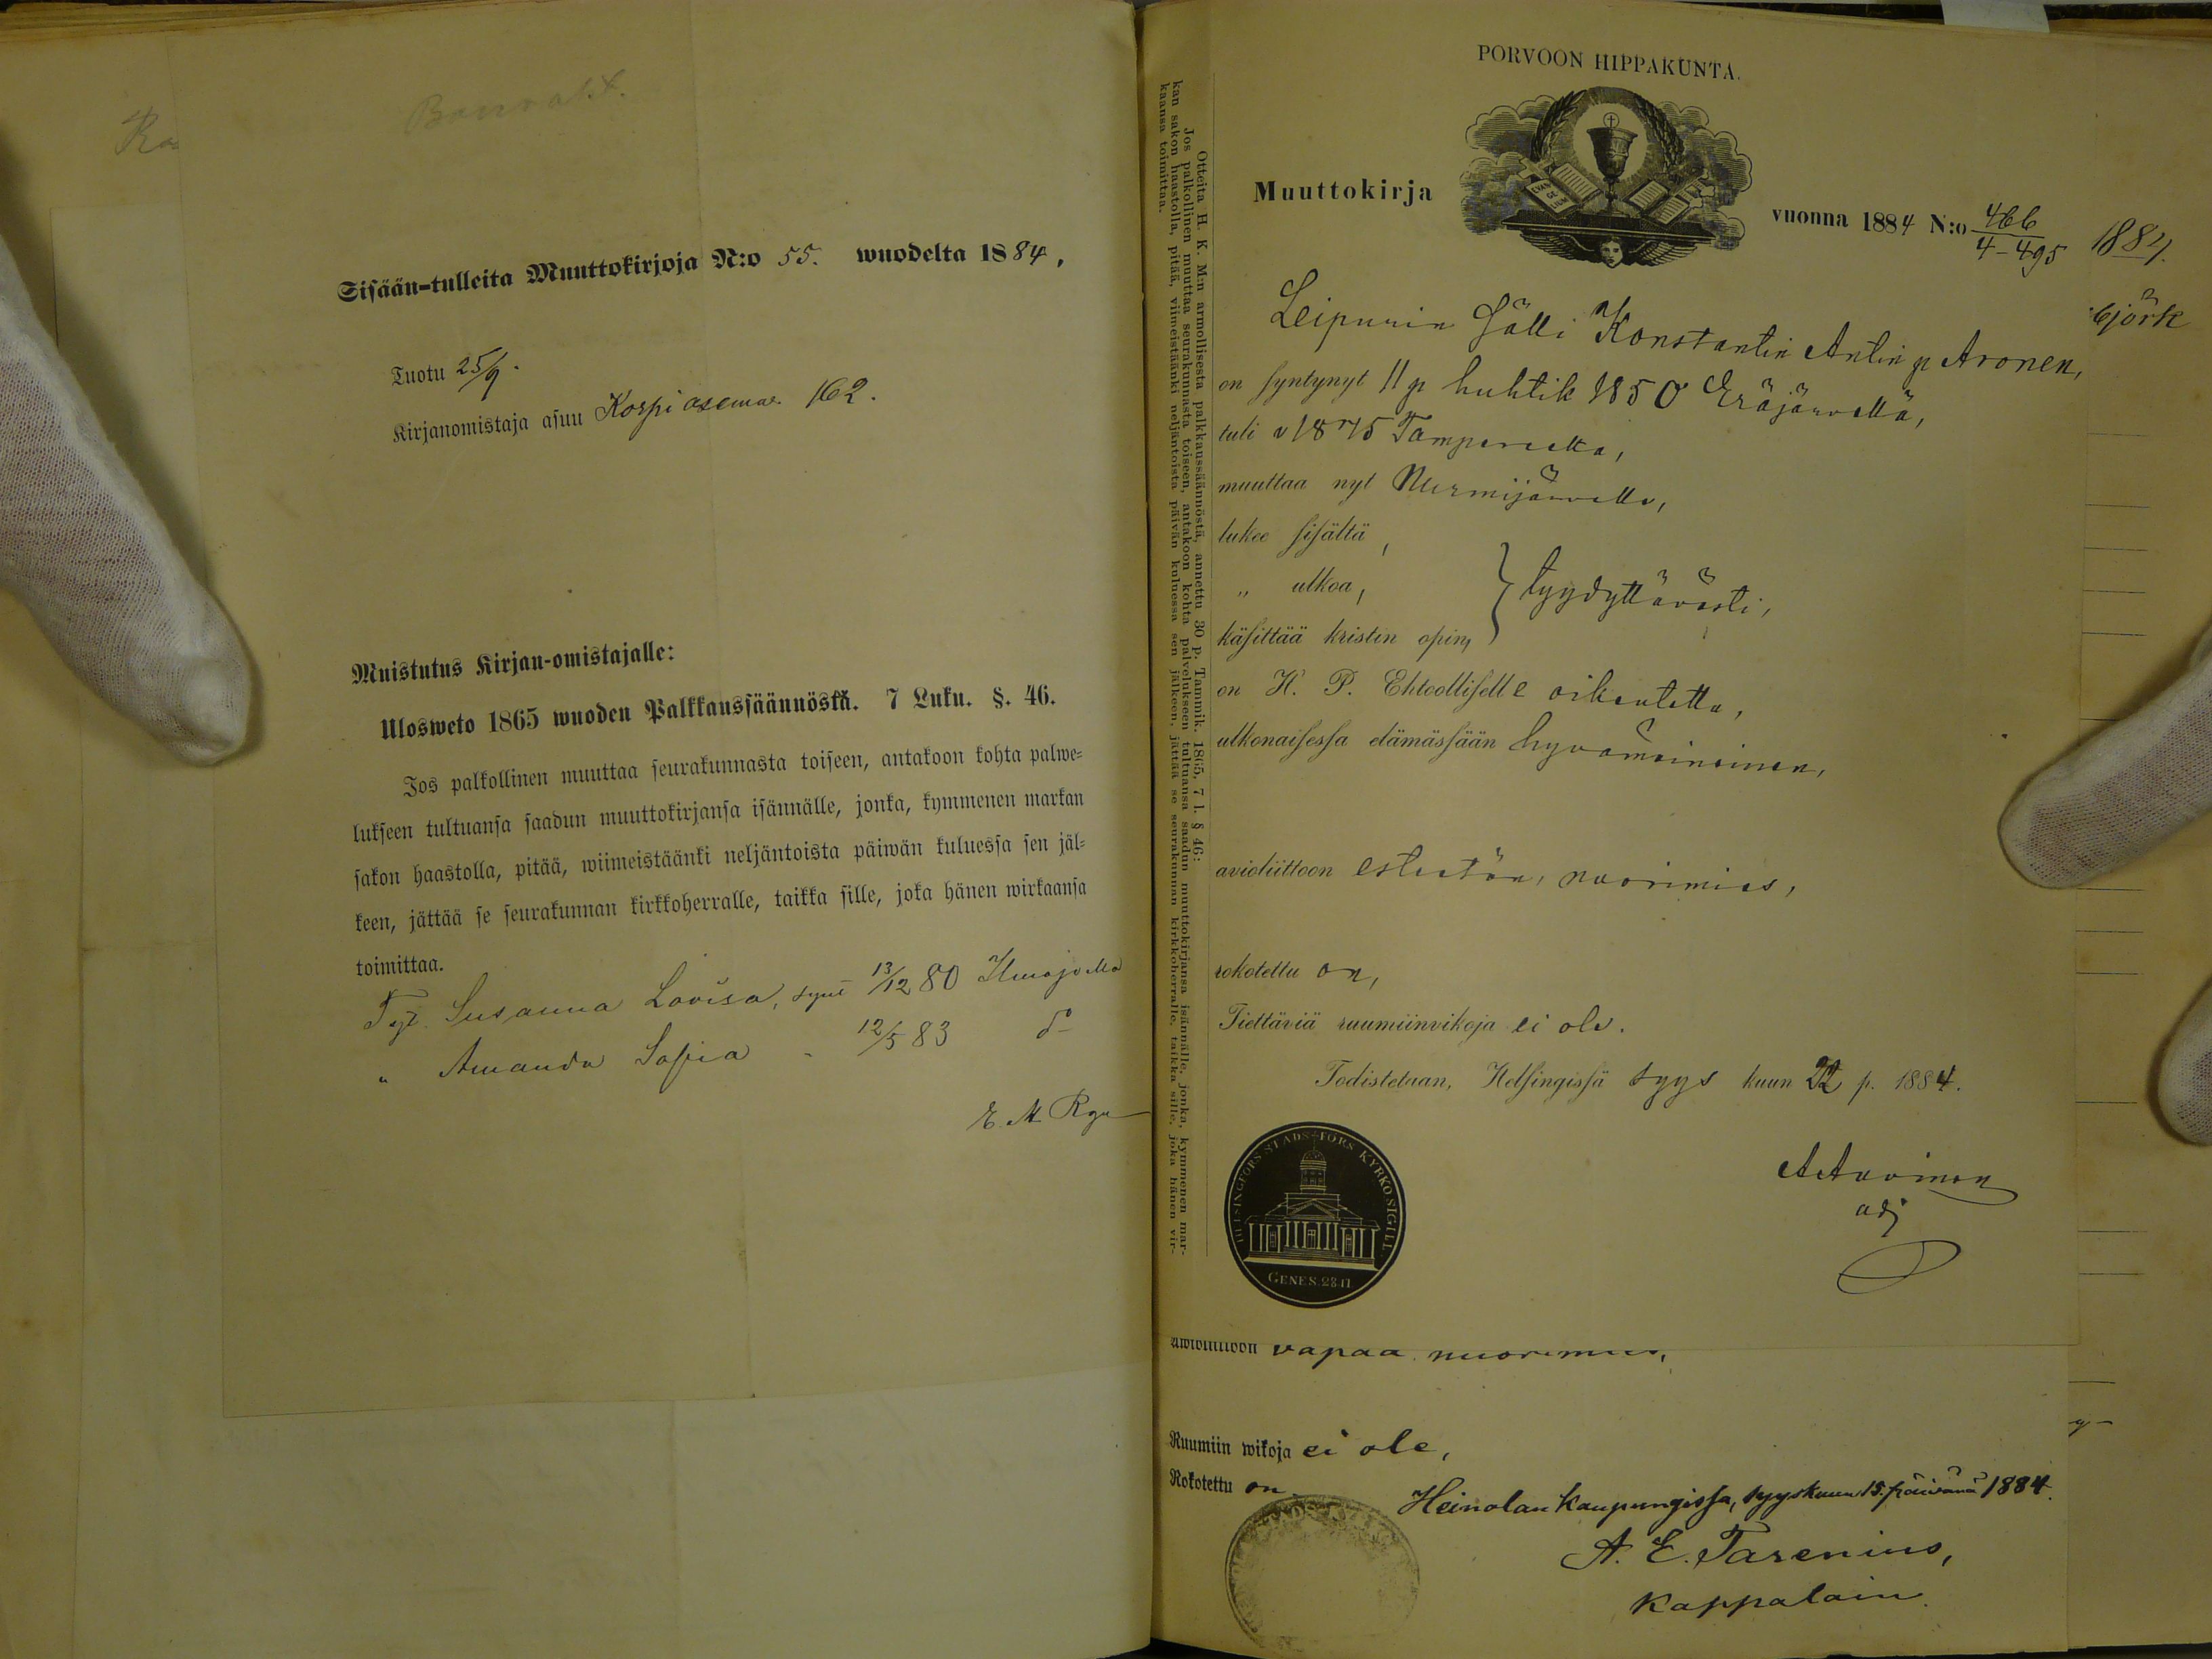 Sisään-tulleita Muuttokirjoja N:o 55. wuodelta 1884,
Tuotu 25/9.
Kirjanomistaja asuu Korpi asemae 162.
Muistutus Kirjan-omistajalle:
Ulosweto 1865 wuoden Palkkaussäännöstä. 7 Luku. §. 46.
Jos palkollinen muuttaa seurakunnasta toiseen, antakoon kohta palwe-
lukseen tultuansa saadun muuttokirjansa isännälle, jonka, kymmenen markan
sakon haastolla, pitää, wiimeistäänki neljäntoista päiwän kuluessa sen jäl-
keen, jättää se seurakunnan kirkkoherralle, taikka sille, joka hänen wirkaansa
toimittaa.
Tyt. Susanna Lovisa, synt 13/12 80 Ilmajoella
" Amanda Sofia - 12/5 83 do
E. M.
Otteita H. K. M:n armollisesta palkkaussäännöstä, annettu 30 p. Tammik. 1865, 7 l. § 46:
Jos palkollinen muuttaa seurakunnasta toiseen, antakoon kohta palvelukseen tultuansa saadun muuttokirjansa isännälle, jonka, kymmenen mar-
kan sakon haastolla, pitää, viimeistäänki neljäntoista päivän kuluessa sen jälkeen, jättää se seurakunnan kirkkoherralle, taikka sille, joka hänen vir-
kaansa toimittaa.
PORVOON HIPPAKUNTA.
EVAN
GE
LIUM
Muuttokirja
vuonna 1884 N:o 466
4-495
1884.
björk
Leipurin sälli Konstantin Antin p Aronen,
on syntynyt 11 p huhtik 1850 Eräjärvellä,
tuli v 1875 Tampereelta,
muuttaa nyt Nurmijärvelle,
lukee sisältä,
" ulkoa, } tyydyttävästi,
käsittää kristin opin,
on H. P. Ehtoolliselle oikeutettu,
ulkonaisessa elämässään hyvämaineinen,
avioliittoon esteetön, nuorimies,
rokotettu on,
Tiettäviä ruumiinvikoja ei ole.
Todistetaan, Helsingissä syys kuun 22 p. 1884.
HELSINGFORS STADS-FÖRS KYRKO.SIGILL
GENES.28.17
adj
vapaa nuorimies,
Ruumiin wikoja ei ole,
Rokotettu on.
Heinolan kaupungissa, syyskuun 15. päivänä 1884.
A. E. Tarenius,
Kappalain.